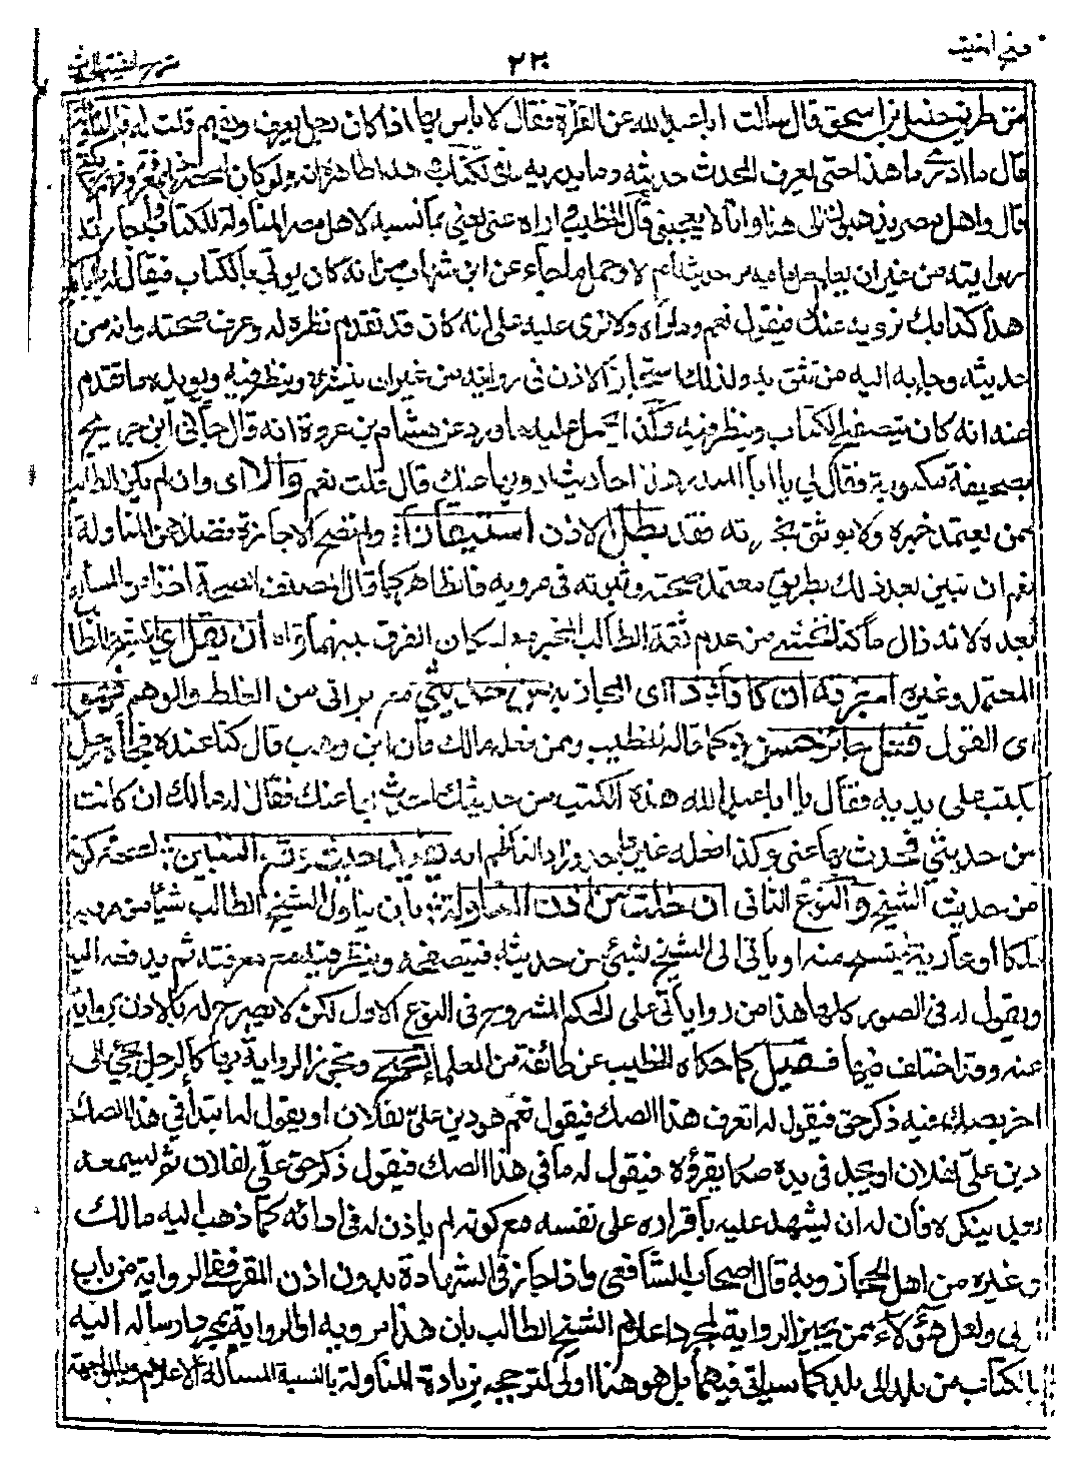 فتح المغيث
٢٣٠
شرح الفية الحديث
من طريق حنبل بن اسحق قال سألت ابا عبد الله عن القراءة فقال لا بأس بها اذا كان رجل يعرف ويفهم قلت له فالمناولة
قال ما ادري ما هذا حتى يعرف المحدث حديثه وما يدريه ما في الكتاب هذا ظاهره انه ولو كان
قال واهل مصر يذهبون الى هذا وانا لا يعجبني قال الخطيب واراه عنى يعني بما نسبه لاهل مصر المناولة للكتاب واجازة
روايته من غير ان يعلم هل ما فيه من حديثه ام لا وحمل ما جاء عن ابن شهاب من انه كان يؤتى بالكتاب فيقال له يا ابا بكر
هذا كتابك نرويه عنك فيقول نعم وما رآه ولا قرئ عليه على انه كان قد تقدم نظره له وعرف صحته وانه من
حديثه وجاء به اليه من يثق به ولذلك استجاز الاذن في روايته من غير ان ينشره وينظر فيه ويؤيده ما تقدم
عنه انه كان يتصفح الكتاب وينظر فيه وكذا يحمل عليه ما ورد عن هشام بن عروة انه قال جاءني ابن جريج
بصحيفة مكتوبة فقال لي يا ابا المنذر هذه احاديث ارويها عنك قال قلت نعم والا اى وان لم يكن الطالب
ممن يعتمد خبره ولا يوثق بخبرته فقد بطل الاذن استيقانا ولم تصح الاجازة فضلا عن المناولة
نعم ان تبين بعد ذلك بطريق معتمد صحته وثبوته في مرويه فالظاهر كما قال المصنف الصحة اخذا من المسألة
بعده لانه زال ما كنا نخشى من عدم ثقة الطالب المخبر مع امكان الفرق بينهما وان يقل اي الشيخ للطالب
المحتمل وغيره اجزته ان كان ذا اى المجاز به من حديثي مع براءتي من الغلط والوهم فهو
اى القول فعل جائز حسن كما قاله الخطيب وممن فعله مالك فان ابن وهب قال كنا عنده فجاءه رجل
بكتب على يديه فقال يا ابا عبد الله هذه الكتب من حديثك احدث بها عنك فقال له مالك ان كانت
من حديثي فحدث بها عني وكذا فعله غير واحد وزاد الناظم انه يفيد حيث وقع التبين لصحة كونه
من حديث الشيخ والنوع الثاني ان خلت من اذن المناولة بان يناول الشيخ الطالب شيئا من مرويه
ملكا او عارية لينتسخ منه او يأتي الى الشيخ بشيء من حديثه فيتصفحه وينظر فيه مع معرفته ثم يدفعه اليه
ويقول له في الصور كلها هذا من روايتي على الحكم المشروح في النوع الاول لكن لا يصرح له بالاذن بروايته
عنه وقد اختلف فيها فـقيل كما حكاه الخطيب عن طائفة من العلماء تصح وتجوز الرواية بها كالرجل يجيء الى
اخر بصك فيه ذكر حق فيقول له اتعرف هذا الصك فيقول نعم هو دين علي لفلان او يقول له ابتداء في هذا الصك
دين علي لفلان او يجد في يده صكا يقرؤه فيقول له ما في هذا الصك فيقول ذكر حق علي لفلان ثم يسمعه
بعد ينكره فان له ان يشهد عليه باقراره على نفسه مع كونه لم يأذن له في ادائه كما ذهب اليه مالك
وغيره من اهل الحجاز وبه قال اصحاب الشافعي واذا جاز في الشهادة بدون اذن المقر ففي الرواية من باب
اولى ولعل هؤلاء ممن يجيز الرواية لمجرد اعلام الشيخ الطالب بان هذا مرويه او الرواية بمجرد ارساله اليه
بالكتاب من بلد الى بلد كما سيأتي فيهما بل هو هنا اولى لترجحه بزيادة المناولة بالنسبة لمسألة الاعلام وبالمواجهة